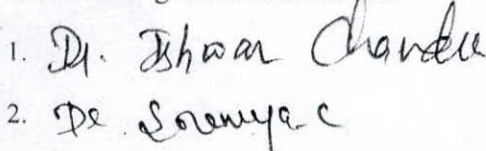 1. Dr. Ishwar Chandra
2. Dr. Sowmya. C